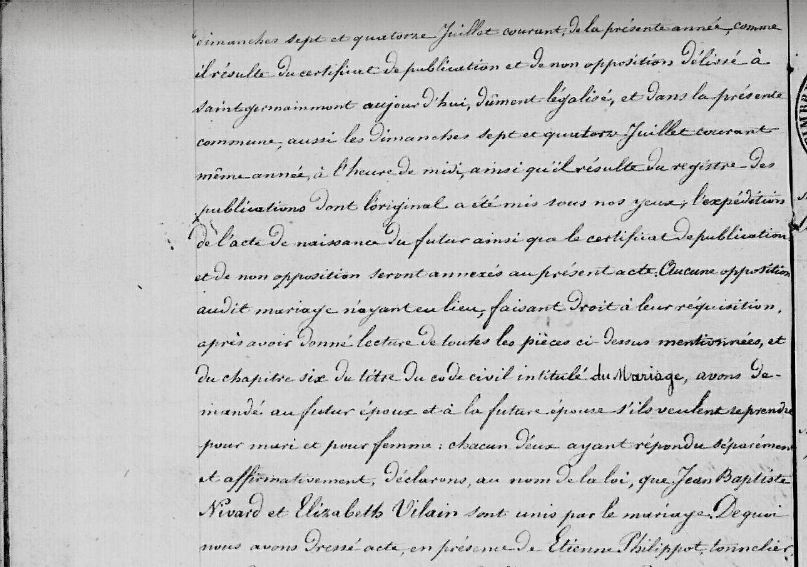 dimanches sept et quatorze Juillet courant, de la présente année, comme
il résulte du certificat de publication et de non opposition délissé à
saint germainmont aujour d'hui, dûment légalisé, et dans la présente
commune, aussi les dimanches sept et quatorze Juillet courant
même année, à l'heure de midi, ainsi qu'il résulte du registre des
publications dont l'original a été mis sous nos yeux; l'expédition
de l'acte de naissance du futur ainsi que le certificat de publication
et de non opposition seront annexés au présent acte. Aucune opposition
audit mariage n'ayant eu lieu, faisant droit à leur réquisition,
après avoir donné lecture de toutes les pièces ci-dessus mentionnées, et
du chapitre six du titre du code civil intitulé du Mariage, avons de-
mandé au futur époux et à la future épouse s'ils veulent se prendre
pour mari et pour femme: chacun d'eux ayant répondu séparément
et affirmativement, déclarons, au nom de la loi, que Jean Baptiste
Nivard et Elizabeth Vilain sont unis par le mariage. De quoi
nous avons dressé acte, en présence de Etienne Philippot, tonnelier,